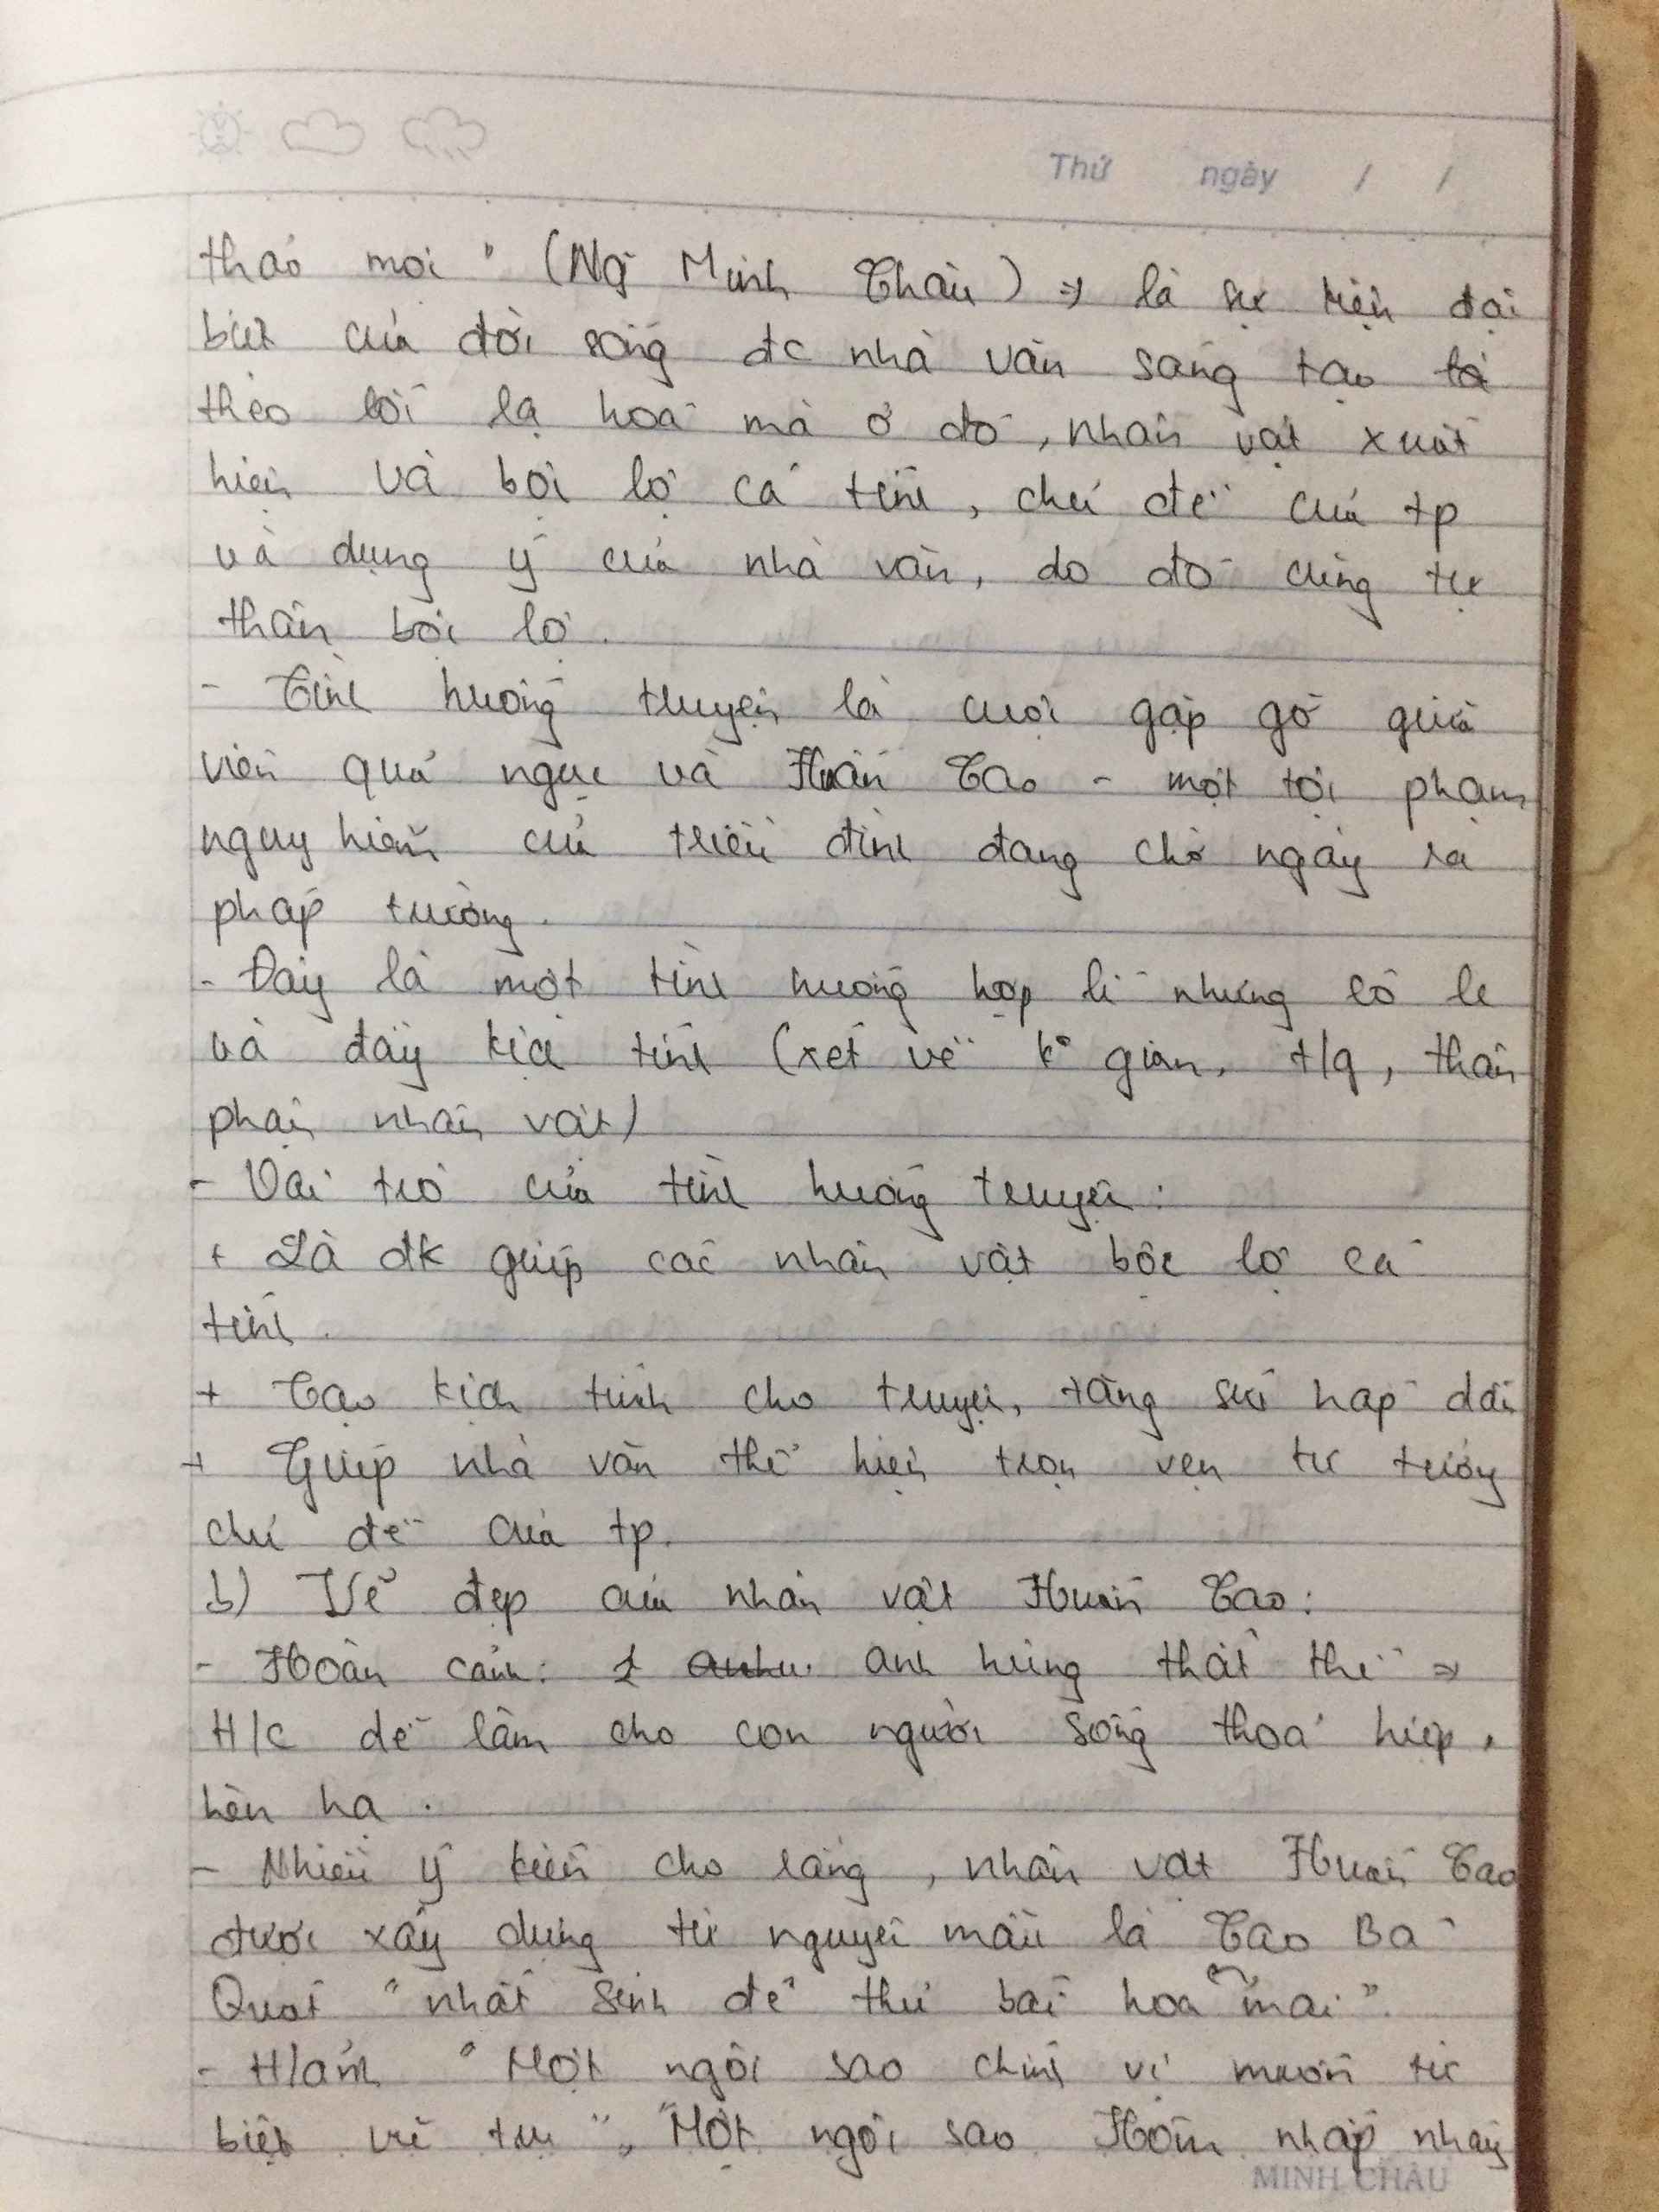 Thứ ngày / /
thảo mọi" (Ng Minh Châu) => là sự kiện đặi
biệt của đời sống đc nhà văn sáng tạo
theo lối lạ hoá mà ở đó, nhân vật xuất
hiện và bộc lộ cá tính, chủ đề của tp
và dụng ý của nhà văn, do đó cũng tự
thân bộc lộ.
- Tình huống truyện là cuộc gặp gỡ giữa
viên quả ngục và Huấn Cao - một tội phạm
nguy hiểm của triều đình đang chờ ngày ra
pháp trường.
- Đây là một tình huống hợp lí nhưng éo le
và đầy kịch tính (xét về k° gian, t/g, thân
phận nhân vật)
- Vai trò của tình huống truyện:
+ Là đk giúp các nhân vật bộc lộ cá
tính.
+ Tạo kịch tính cho truyện, tăng sức hấp dẫn
+ Giúp nhà văn thể hiện trọn vẹn tư tưởng
chủ đề của tp.
b) Vẻ đẹp của nhân vật Huấn Cao:
- Hoàn cảnh: 1 anh hùng thất thế =>
H/c dễ làm cho con người sống thoả hiệp,
hèn hạ.
- Nhiều ý kiến cho rằng, nhân vật Huấn Cao
được xây dựng từ nguyên mẫu là Cao Bá
Quát "nhất sinh đê thủ bái hoa mai".
- H/ảnh "Một ngôi sao chính vị muốn từ
biệt vũ trụ", "Một ngôi sao Hôm nhấp nháy
MINH CHÂU